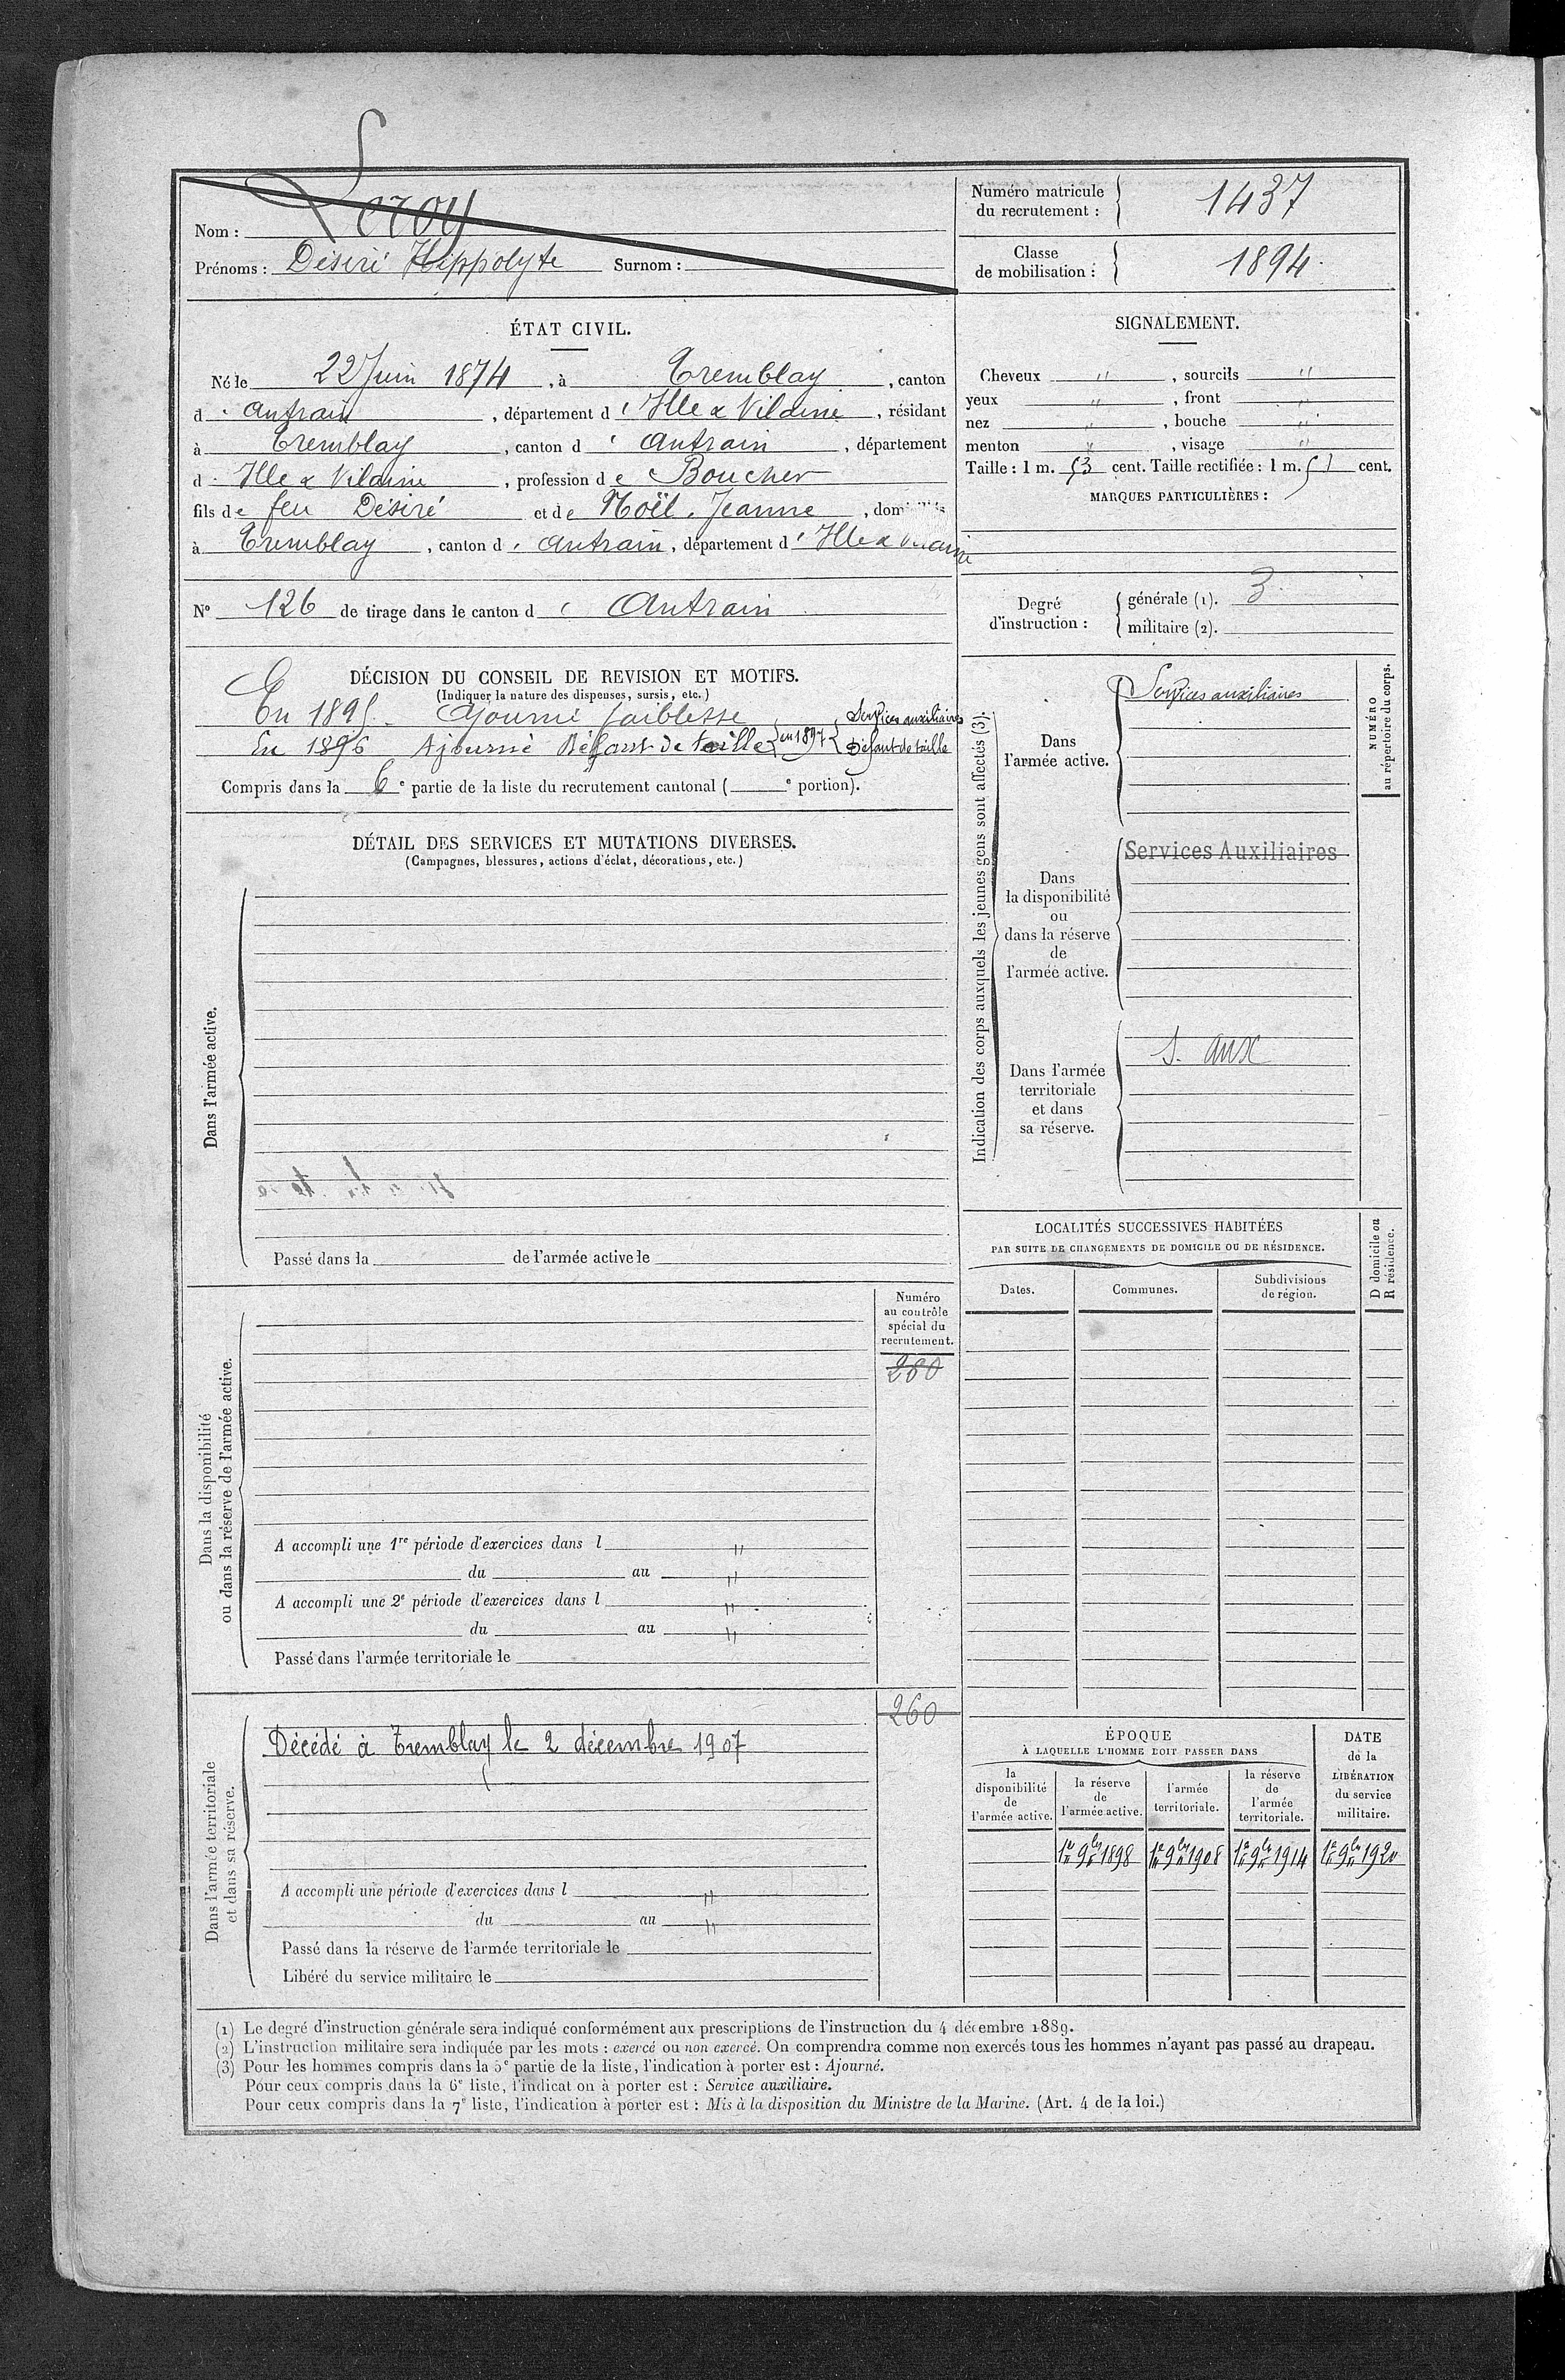 Nom : Leroy
Prénoms : Désiré Hippolyte Surnom :
Numéro matricule du recrutement : 1437
Classe de mobilisation : 1894
ÉTAT CIVIL.
Né le 22 Juin 1874, à Tremblay, canton
d' Antrain, département d' Ille & Vilaine, résidant
à Tremblay, canton d' Antrain, département
d' Ille & Vilaine, profession de Boucher
fils de feu Désiré et de Noël Jeanne, domiciliés
à Tremblay, canton d' Antrain, département d' Ille & Vilaine
N° 126 de tirage dans le canton d' Antrain
DÉCISION DU CONSEIL DE REVISION ET MOTIFS.
(Indiquer la nature des dispenses, sursis, etc.)
En 1895 - Ajourné faiblesse
En 1896 Ajourné Défaut de taille { en 1897 { Services auxiliaires Défaut de taille
Compris dans la 6e partie de la liste du recrutement cantonal ( e portion).
DÉTAIL DES SERVICES ET MUTATIONS DIVERSES.
(Campagnes, blessures, actions d'éclat, décorations, etc.)
Dans l'armée active.
Passé dans la de l'armée active le
Dans la disponibilité
ou dans la réserve de l'armée active.
Numéro
au contrôle
spécial du
recrutement.
280
A accompli une 1re période d'exercices dans l "
du au "
A accompli une 2e période d'exercices dans l "
du au "
Passé dans l'armée territoriale le
Dans l'armée territoriale
et dans sa réserve.
260
Décédé à Tremblay le 2 décembre 1907
A accompli une période d'exercices dans l "
du au "
Passé dans la réserve de l'armée territoriale le
Libéré du service militaire le
SIGNALEMENT.
Cheveux ", sourcils "
yeux ", front "
nez ", bouche "
menton ", visage "
Taille : 1 m. 53 cent. Taille rectifiée : 1 m. cent.
MARQUES PARTICULIÈRES :
Degré
d'instruction :
générale (1). 3
militaire (2).
Indication des corps auxquels les jeunes gens sont affectés (3).
NUMÉRO
au répertoire du corps.
Dans
l'armée active.
Services auxiliaires
Dans
la disponibilité
ou
dans la réserve
de
l'armée active.
Services Auxiliaires
Dans l'armée
territoriale
et dans
sa réserve.
S. aux
LOCALITÉS SUCCESSIVES HABITÉES
PAR SUITE DE CHANGEMENTS DE DOMICILE OU DE RÉSIDENCE.
Dates.
Communes.
Subdivisions
de région.
D domicile ou
R résidence.
ÉPOQUE
À LAQUELLE L'HOMME DOIT PASSER DANS
la
disponibilité
de
l'armée active.
la réserve
de
l'armée active.
l'armée
territoriale.
la réserve
de
l'armée
territoriale.
DATE
de la
LIBÉRATION
du service
militaire.
1er 9bre 1898 1er 9bre 1908 1er 9bre 1914 1er 9bre 1920
(1) Le degré d'instruction générale sera indiqué conformément aux prescriptions de l'instruction du 4 décembre 1889.
(2) L'instruction militaire sera indiquée par les mots : exercé ou non exercé. On comprendra comme non exercés tous les hommes n'ayant pas passé au drapeau.
(3) Pour les hommes compris dans la 5e partie de la liste, l'indication à porter est : Ajourné.
Pour ceux compris dans la 6e liste, l'indication à porter est : Service auxiliaire.
Pour ceux compris dans la 7e liste, l'indication à porter est : Mis à la disposition du Ministre de la Marine. (Art. 4 de la loi.)